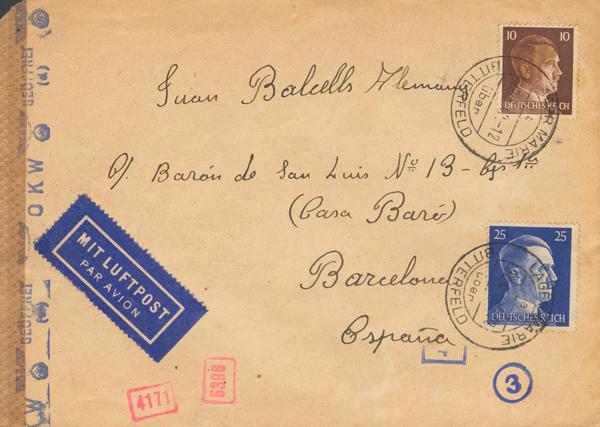 10 10
DEUTSCHES REICH
Juan Balcells Alemany
C/. Barón de San Luis Nº 13 - bjs
(Casa Baró)
Barcelona
España
MIT LUFTPOST
PAR AVION
25 25
DEUTSCHES REICH
LAGER MARIE
über
BITTERFELD
LAGER MARIE
über
BITTERFELD
GEÖFFNET
OKW
GEÖFFNET
4171
6396
3